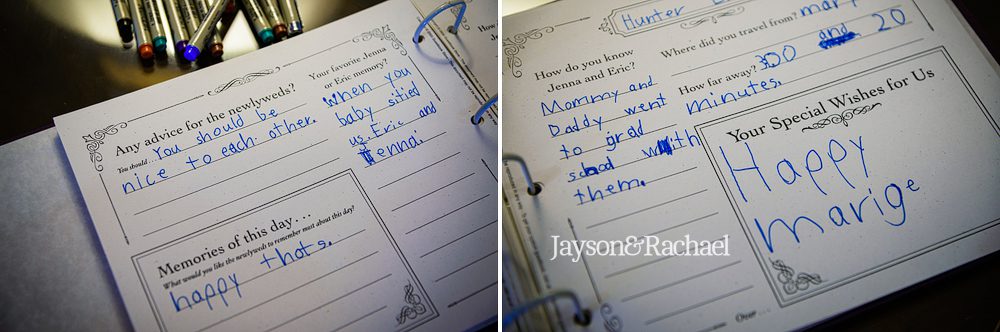 Any advice for the newlyweds?
You should... You should be
nice to each other.
Your favorite Jenna
or Eric memory?
When you
baby sitied
us Eric and
Jenna
Memories of this day...
What would you like the newlyweds to remember most about this day?
happy thots.
Hunter
How do you know
Jenna and Eric?
Mommy and
Daddy went
to grad
school with
them.
Where did you travel from?
How far away? 300 and 20
minutes.
Your Special Wishes for Us
Happy
marige
Over...
Jayson&Rachael